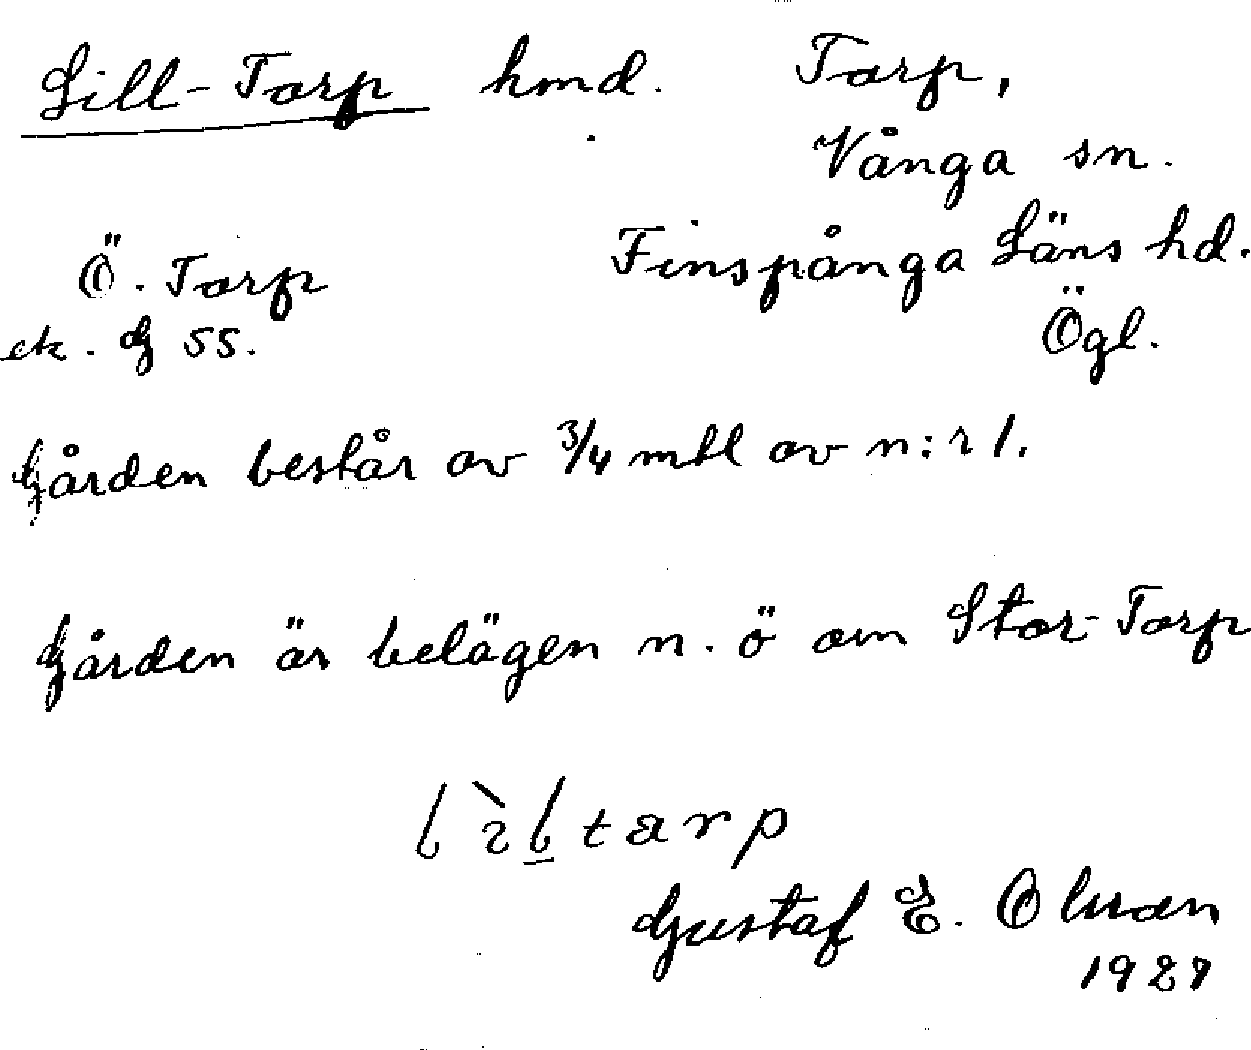 Lill-Torp hmd. Torp,
Vånga sn.
Ö. Torp Finspånga Läns hd.
ek. G 55. Ögl.
Gården består av 3/4 mtl av n:r 1.
Gården är belägen n. ö om Stor-Torp
Gustaf E. Olsson
1927